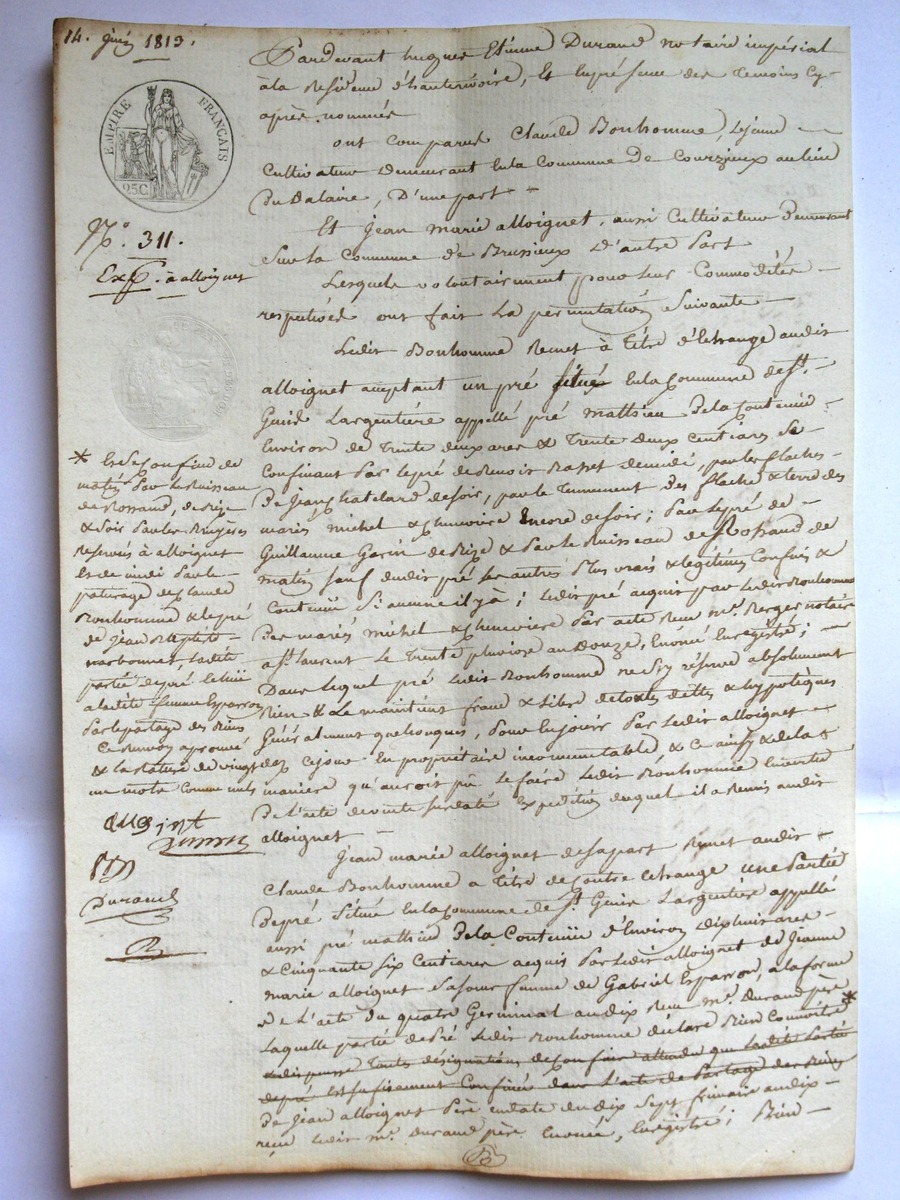 14. Juin 1813.
EMPIRE FRANÇAIS
25C
N.° 311.
Exp. à alloignet
Pardevant hugues Etienne Durand notaire impérial
à la Residence d'hauterivoire, Et En présence des temoins Cy-
après nommés
ont comparus Claude Bonhomme, Lejeune
Cultivateur Demeurant En la Commune de Courzieux au lieu
Du Dalaire, D'une part
Et Jean Marie alloignet, aussi Cultivateur Demeurant
Sur la Commune de Brussieux D'autre Part
Lesquels volontairement pour leur Commodités
respectives ont fait La permutation Suivante
Ledit Bonhomme Remet à titre d'Echange audit
alloignet acceptant un pré situé En la Commune de St.
Genis Largentière appellé pré mathieu De la Contenue
Environ de Trente deux ares & Trente Deux Centiares Se
Confinant Par le pré de Benoit Rasset de midi, par les flaches
De Jean Chatelard de soir, par le Tennement des flache & terre des
mariés michel & Chunoviere Encore de soir; Par le pré de
Guillaume Garin de Bize & Par le Ruisseau de Rossand de
matin Sauf dudit pré Ses autres Plus vrais & legitimes Confins &
Contenue Si aucune il y à; Ledit pré acquis par Ledit Bonhomme
Des mariés michel & Chunoviere Par acte Reçu M.e Berger notaire
a St. laurent Le Trente pluviose an Douze, Enoncé Enregistré;
Dans Lequel pré Ledit Bonhomme ne s'y réserve absolument
Rien & Le maintient franc & Libre de toutes dettes & hypotèques
Généralement quelconques, Pour En jouir Par Ledit alloignet
dez Ce jour En propriétaire incommutable & Ce ainsy & de la
maniere qu'auroit pû le faire Ledit Bonhomme En vertu
De l'acte de vente susdaté Expedition duquel il a Remis audit
alloignet
Jean marie alloignet de sa part Remet audit
Claude Bonhomme a titre de Contre Echange une Partie
De pré Située En la Commune de St. Genis Largentière appellé
aussi pré mathieu De la Contenue d'Environ dix huit ares
& Cinquante Six Centiares acquis Par Ledit alloignet de Jeanne
marie alloignet Sa soeur femme de Gabriel Esparron, a la forme
De L'acte du quatre Germinal an dix Reçu M.e Durand père
Laquelle partie de Pré Ledit Bonhomme déclare Bien Connoitre *
& dispense Toutes désignations de Confins attendu que Ladite Partie
de pré Est suffisament Confinée dans L'acte de Partage des Biens
De Jean alloignet Père En date du dix Sept frimaire an dix
reçu Ledit M.e Durand père Enoncé, Enregistré; Bien
* Et Se Confine de
matin Par Le Ruisseau
de Rossand, de Bize
& Soir Par les Bruyères
Reservées à alloignet
Et de midi Par le
paturage de Claude
Bonhomme & le pré
de Jean Baptiste
narbonnet, Ladite
partie de pré Echue
a Ladite femme Esparron
Par le partage des Biens
Ce Renvoi aprouvé
& la Rature de vingt
un mots Comme nuls
Durand